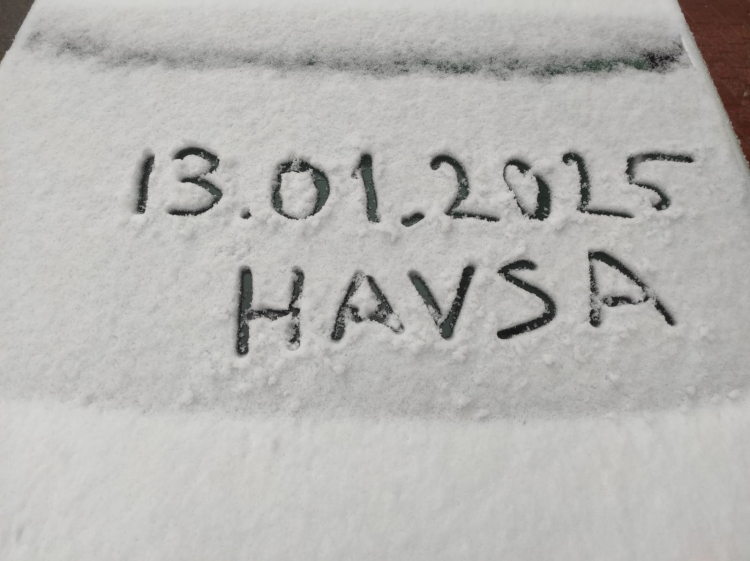 13.01.2025
HAVSA